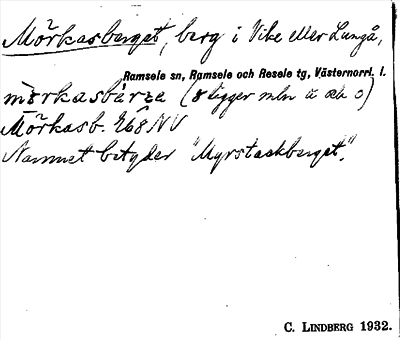 Mörkasberget, berg i Vike eller Lungå,
Ramsele sn, Ramsele och Resele tg, Västernorrl. l.
mörkasbärʒe (8 ligger mln ü och o)
Mörkasb. 268 NV
Namnet betyder "Myrstackberget".
C. LINDBERG 1932.